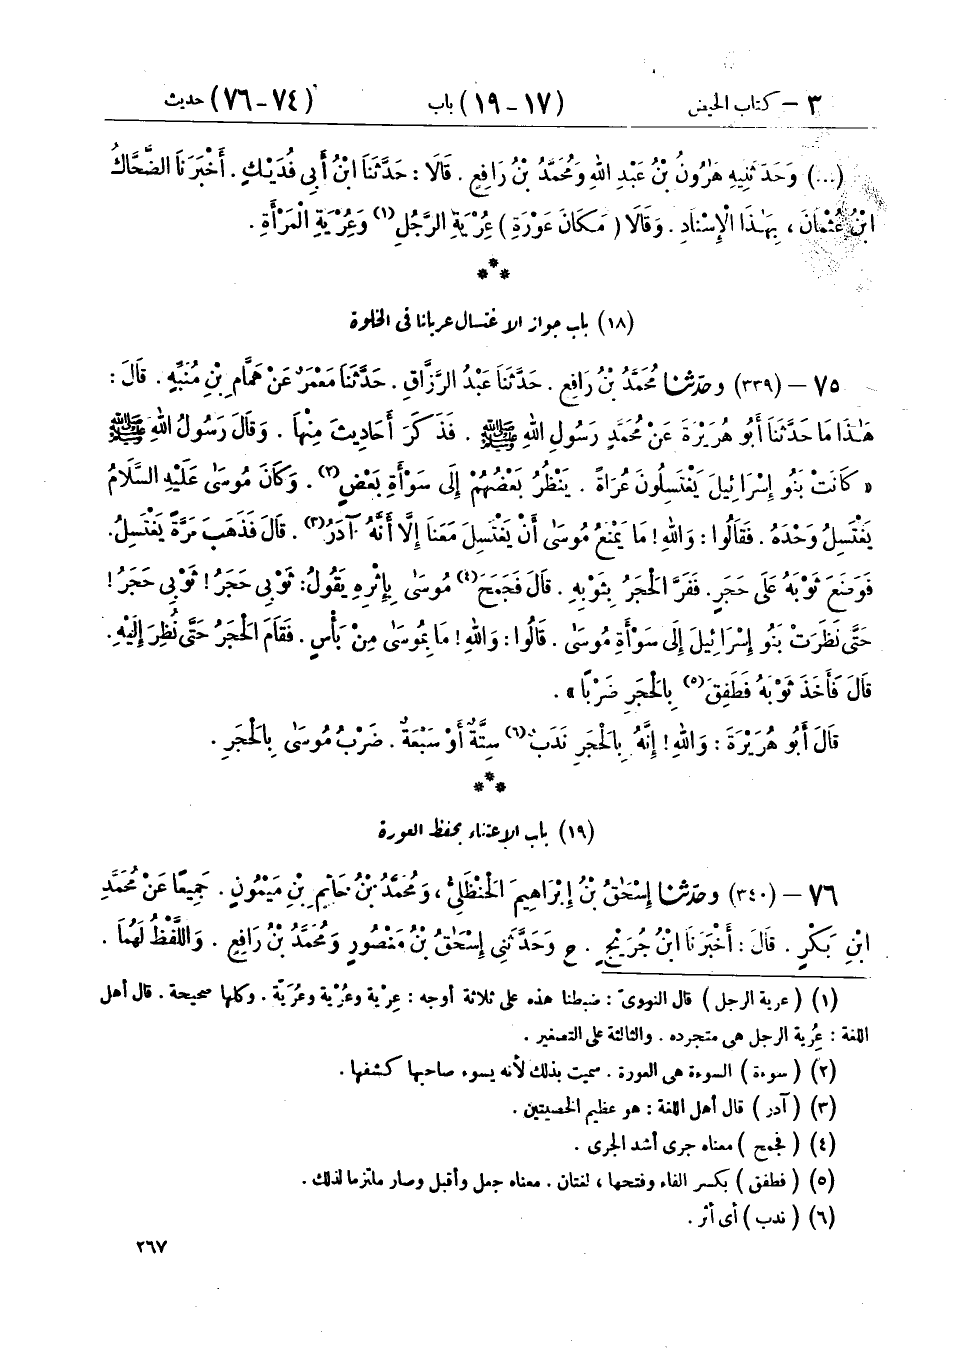 ٣ - كتاب الحيض (١٧-١٩) باب (٧٤-٧٦) حديث
(...) وَحَدَّثَنِيهِ هَرُونُ بْنُ عَبْدِ اللهِ وَمُحَمَّدُ بْنُ رَافِعٍ . قَالَا : حَدَّثَنَا ابْنُ أَبِي فُدَيْكٍ . أَخْبَرَنَا الضَّحَّاكُ
ابْنُ عُثْمَانَ ، بِهَذَا الْإِسْنَادِ . وَقَالَا ( مَكَانَ عَوْرَةِ ) عُِرْيَةِ الرَّجُلِ(١) وَعُِرْيَةِ الْمَرْأَةِ .
***
(١٨) باب جواز الاغتسال عريانا فى الخلوة
٧٥ - (٣٣٩) وحَدَّثَنَا مُحَمَّدُ بْنُ رَافِعٍ . حَدَّثَنَا عَبْدُ الرَّزَّاقِ . حَدَّثَنَا مَعْمَرٌ عَنْ هَمَّامِ بْنِ مُنَبِّهٍ . قَالَ :
هَذَا مَا حَدَّثَنَا أَبُو هُرَيْرَةَ عَنْ مُحَمَّدٍ رَسُولِ اللهِ ﷺ . فَذَكَرَ أَحَادِيثَ مِنْهَا . وَقَالَ رَسُولُ اللهِ ﷺ
« كَانَتْ بَنُو إِسْرَائِيلَ يَغْتَسِلُونَ عُرَاةً . يَنْظُرُ بَعْضُهُمْ إِلَى سَوْأَةِ بَعْضٍ(٢) . وَكَانَ مُوسَىٰ عَلَيْهِ السَّلَامُ
يَغْتَسِلُ وَحْدَهُ . فَقَالُوا : وَاللهِ ! مَا يَمْنَعُ مُوسَىٰ أَنْ يَغْتَسِلَ مَعَنَا إِلَّا أَنَّهُ آدَرُ(٣) . قَالَ فَذَهَبَ مَرَّةً يَغْتَسِلُ.
فَوَضَعَ ثَوْبَهُ عَلَى حَجَرٍ . فَفَرَّ الْحَجَرُ بِثَوْبِهِ . قَالَ فَجَمَحَ(٤) مُوسَىٰ بِإِثْرِهِ يَقُولُ: ثَوْبِي حَجَرُ ! ثَوْبِي حَجَرُ !
حَتَّى نَظَرَتْ بَنُو إِسْرَائِيلَ إِلَى سَوْأَةِ مُوسَىٰ . قَالُوا : وَاللهِ ! مَا بِمُوسَىٰ مِنْ بَأْسٍ . فَقَامَ الْحَجَرُ حَتَّى نُظِرَ إِلَيْهِ.
قَالَ فَأَخَذَ ثَوْبَهُ فَطَفِقَ(٥) بِالْحَجَرِ ضَرْبًا » .
قَالَ أَبُو هُرَيْرَةَ : وَاللهِ ! إِنَّهُ بِالْحَجَرِ نَدَبٌ(٦) سِتَّةٌ أَوْ سَبْعَةٌ . ضَرْبُ مُوسَىٰ بِالْحَجَرِ .
***
(١٩) باب الاعتناء بحفظ العورة
٧٦ - (٣٤٠) وحَدَّثَنَا إِسْحَقُ بْنُ إِبْرَاهِيمَ الْحَنْظَلِيُّ ، وَمُحَمَّدُ بْنُ حَاتِمِ بْنِ مَيْمُونٍ . جَمِيعًا عَنْ مُحَمَّدِ
ابْنِ بَكْرٍ . قَالَ : أَخْبَرَنَا ابْنُ جُرَيْجٍ . ح وَحَدَّثَنِي إِسْحَقُ بْنُ مَنْصُورٍ وَمُحَمَّدُ بْنُ رَافِعٍ . وَاللَّفْظُ لَهُمَا .
(١) ( عرية الرجل ) قال النووىّ : ضبطنا هذه على ثلاثة أوجه : عِرْيَة وعُرْيَة وعُرَيَّة . وكلها صحيحة . قال أهل
اللغة : عُِرية الرجل هى متجرده . والثالثة على التصغير .
(٢) ( سوءة ) السوءة هى العورة . سميت بذلك لأنه يسوء صاحبها كشفها .
(٣) ( آدر ) قال أهل اللغة : هو عظيم الخصيتين .
(٤) ( فجمح ) معناه جرى أشد الجرى .
(٥) ( فطفق ) بكسر الفاء وفتحها ، لغتان . معناه جعل وأقبل وصار ملتزما لذلك .
(٦) ( ندب ) أى أثر .
٢٦٧